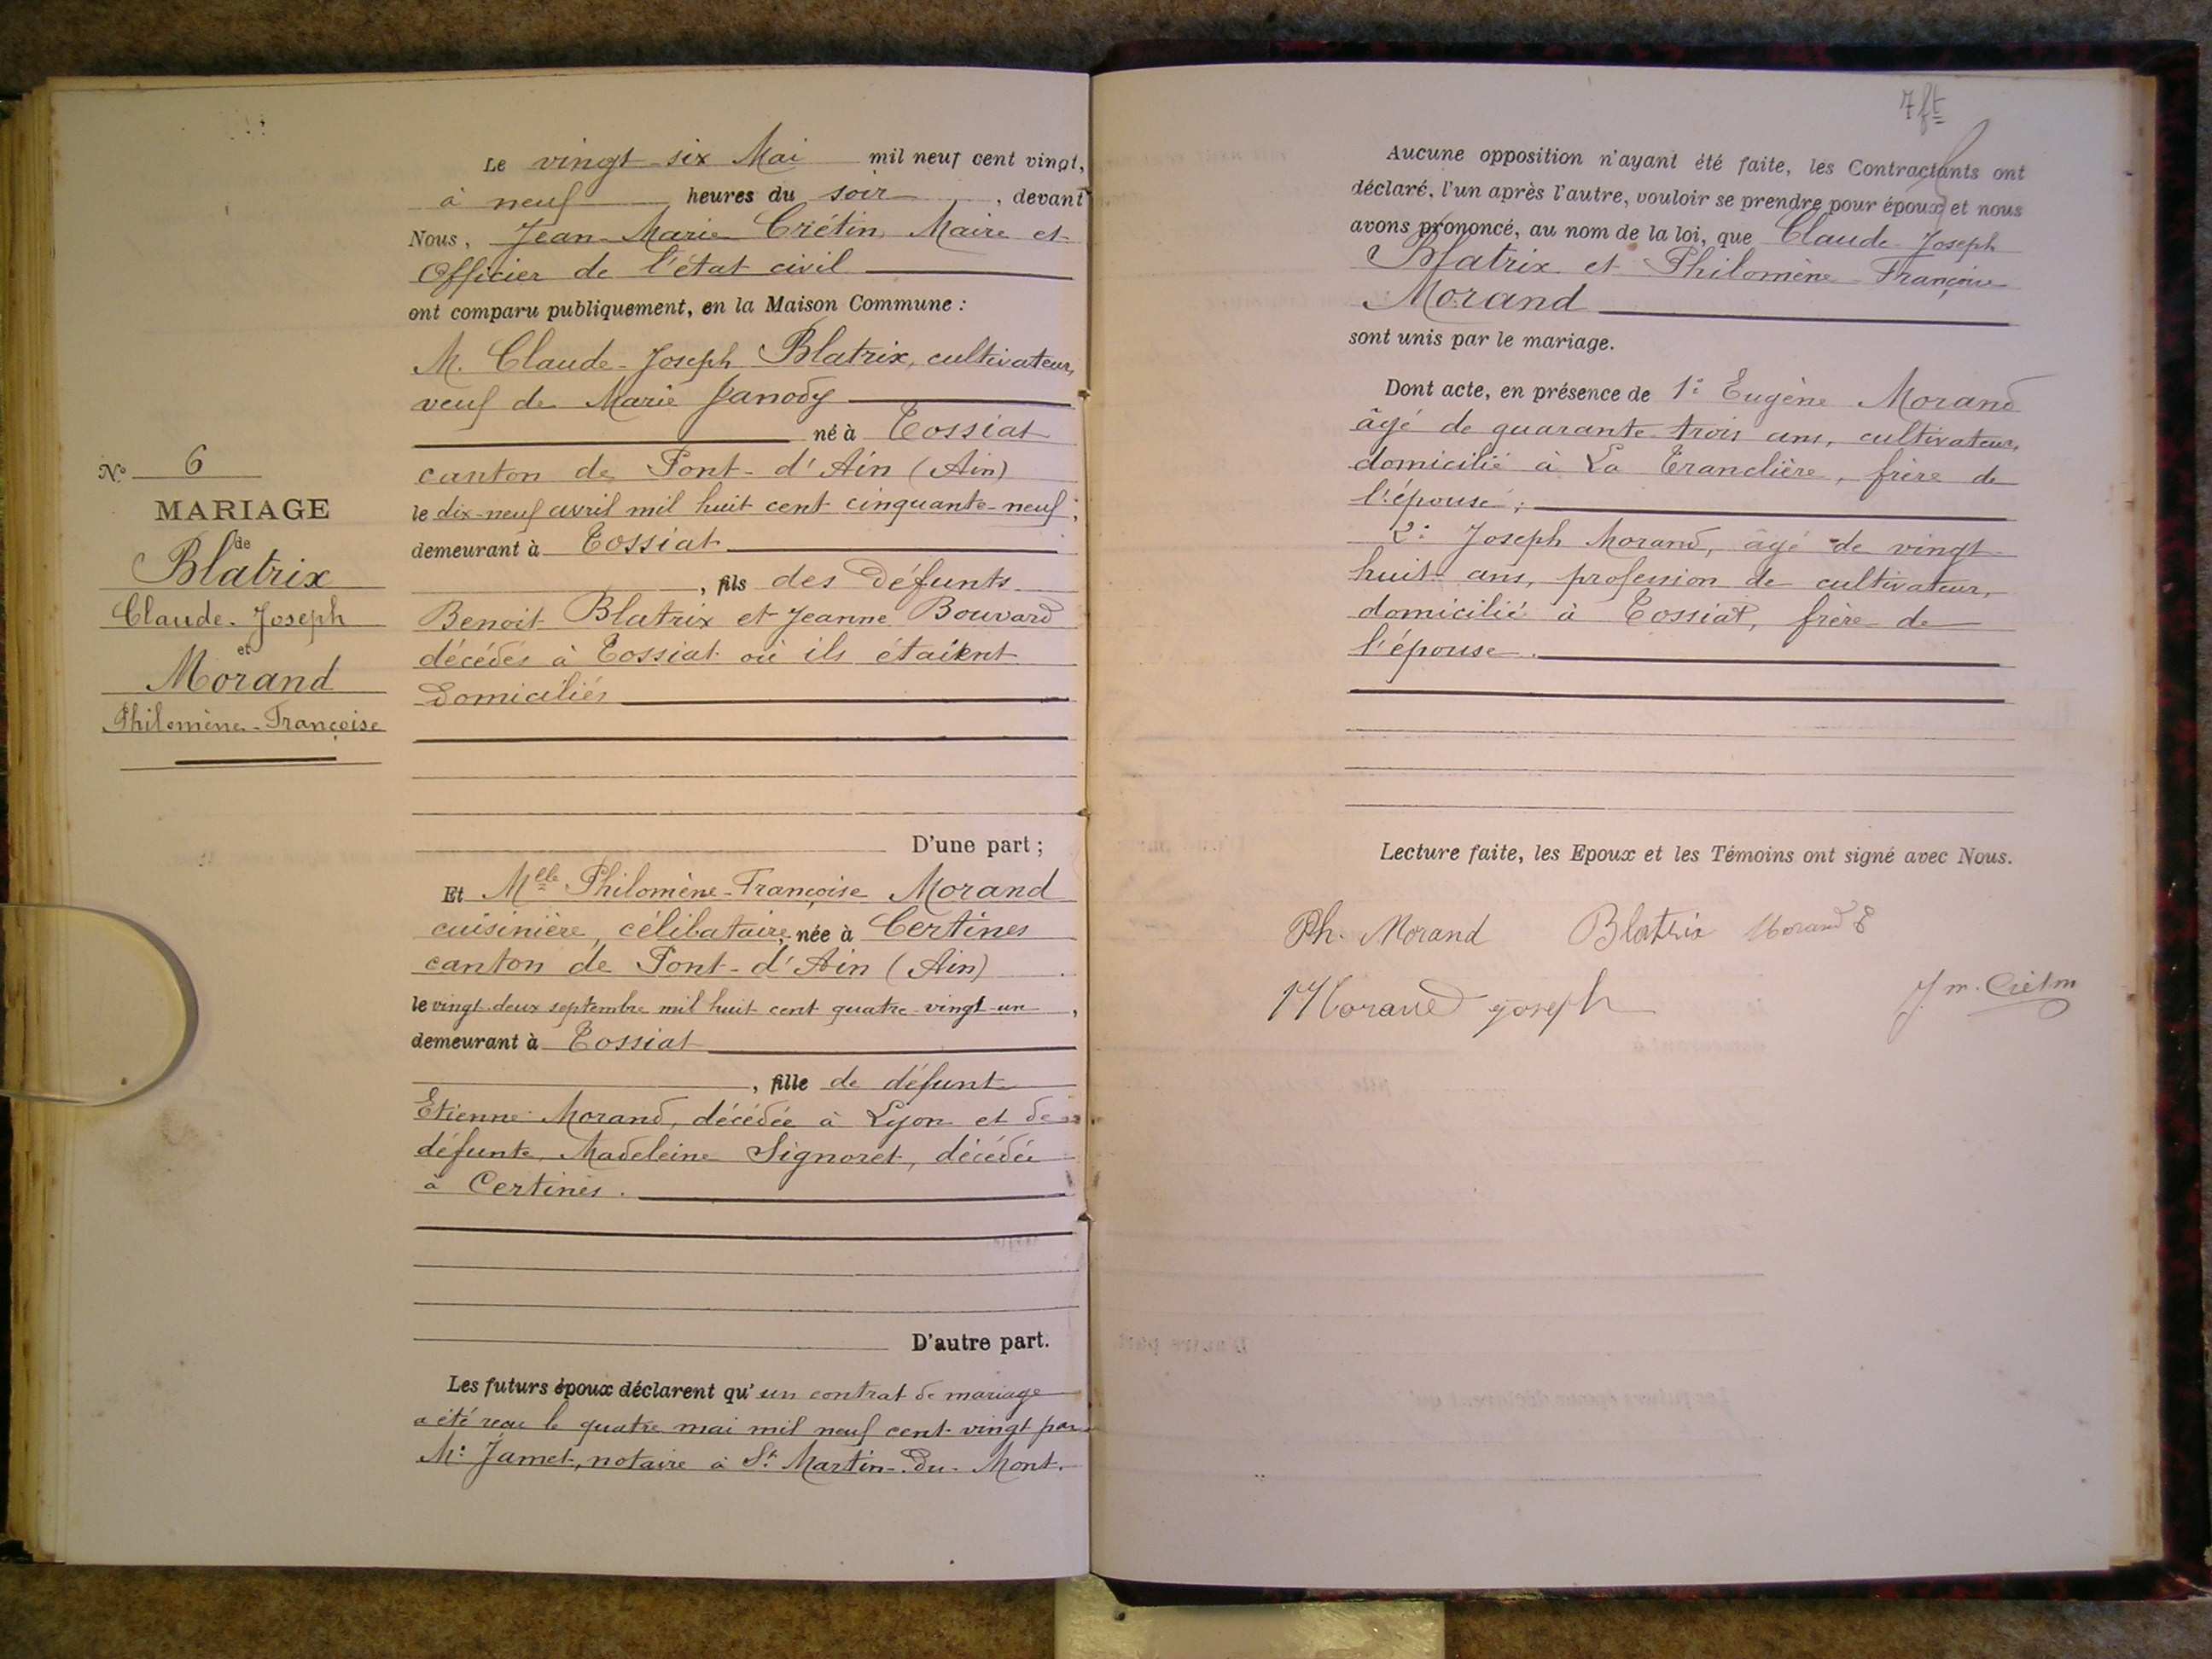 Le vingt-six Mai mil neuf cent vingt,
à neuf heures du soir, devant
Nous, Jean-Marie Crétin, Maire et
Officier de l'état civil
ont comparu publiquement, en la Maison Commune :
M. Claude-Joseph Blatrix, cultivateur,
veuf de Marie Janody
né à Tossiat
canton de Pont-d'Ain (Ain)
le dix-neuf avril mil huit cent cinquante-neuf;
demeurant à Tossiat
, fils des défunts
Benoit Blatrix et Jeanne Bouvard
décédés à Tossiat où ils étaient
domiciliés
D'une part ;
Et Melle Philomène-Françoise Morand
cuisinière, célibataire, née à Certines
canton de Pont-d'Ain (Ain)
le vingt-deux septembre mil huit cent quatre-vingt-un,
demeurant à Tossiat
, fille de défunt
Etienne Morand, décédée à Lyon et de
défunte Madeleine Signoret, décédée
à Certines.
D'autre part.
Les futurs époux déclarent qu'un contrat de mariage
a été reçu le quatre mai mil neuf cent vingt par
Me Jamet, notaire à St Martin-du-Mont.
No 6
MARIAGE
de
Blatrix
Claude-Joseph
et
Morand
Philomène-Françoise
7 ft
Aucune opposition n'ayant été faite, les Contractants ont
déclaré, l'un après l'autre, vouloir se prendre pour époux et nous
avons prononcé, au nom de la loi, que Claude-Joseph
Blatrix et Philomène-Françoise
Morand
sont unis par le mariage.
Dont acte, en présence de 1° Eugène Morand
âgé de quarante-trois ans, cultivateur,
domicilié à La Tranclière, frère de
l'épouse ;
2° Joseph Morand, âgé de vingt-
huit ans, profession de cultivateur,
domicilié à Tossiat, frère de
l'épouse.
Lecture faite, les Epoux et les Témoins ont signé avec Nous.
Ph. Morand Blatrix Morand E
Morand Joseph J m. Crétin